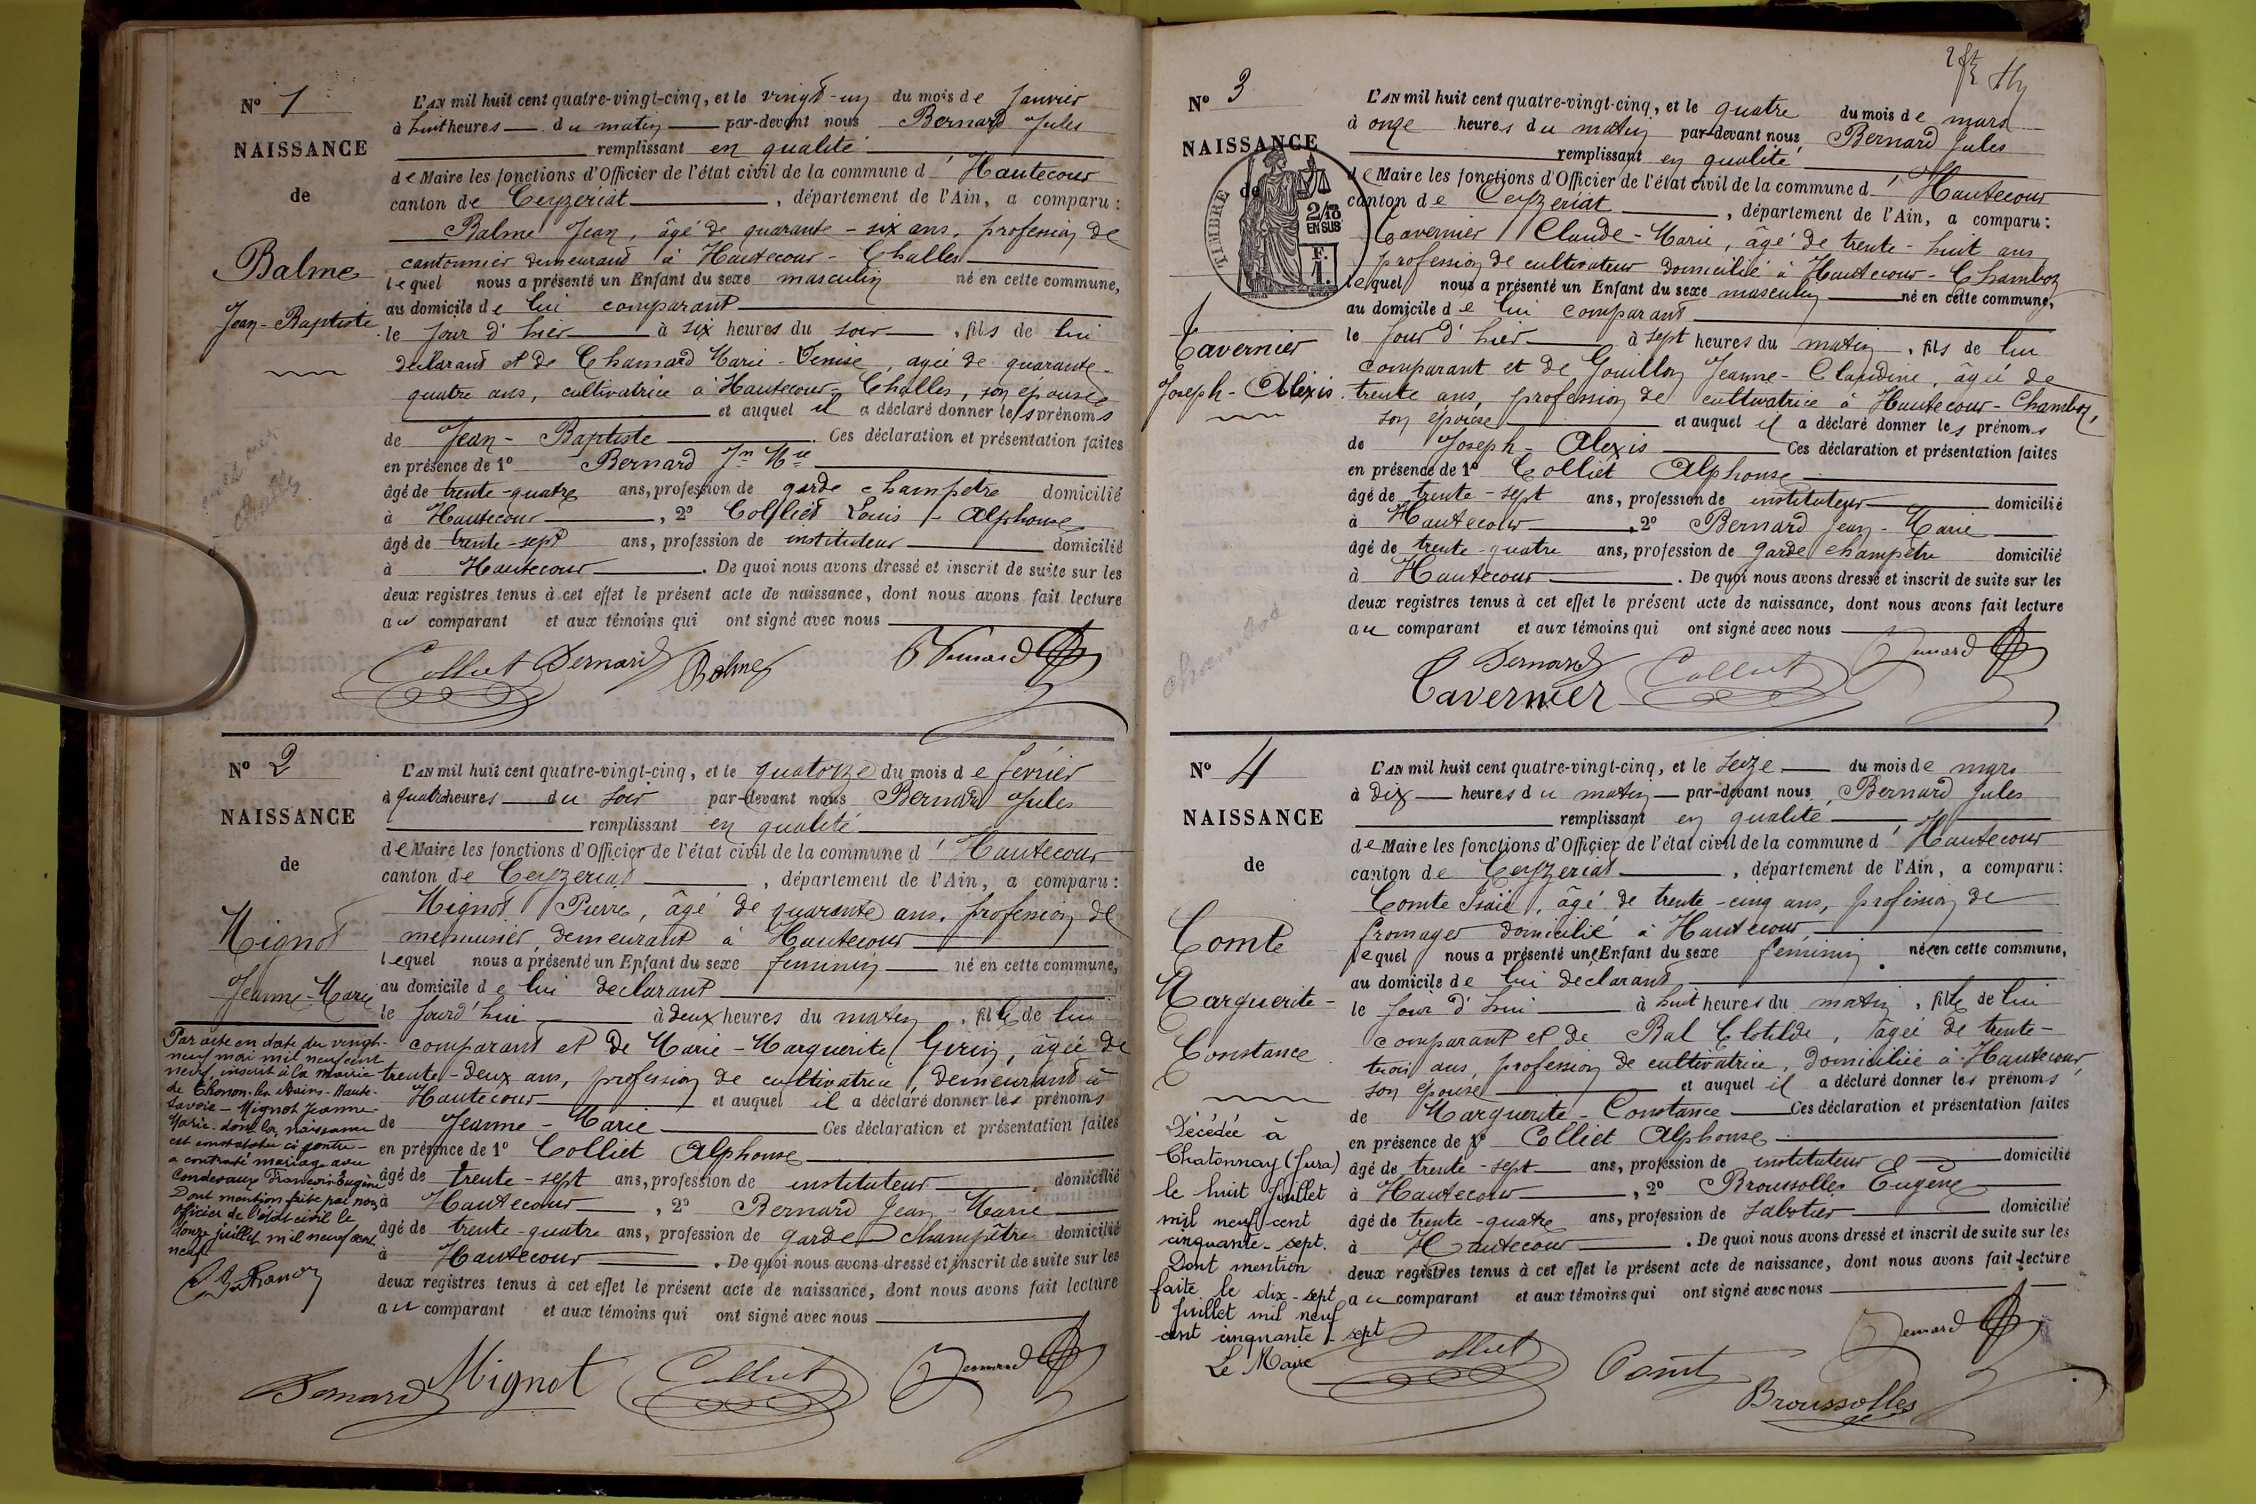 N° 1
NAISSANCE
de
Balme
Jean-Baptiste
L'AN mil huit cent quatre-vingt-cinq, et le vingt-un du mois de Janvier
à huit heures du matin par-devant nous Bernard Jules
remplissant en qualité
de Maire les fonctions d'Officier de l'état civil de la commune d'Hautecour
canton de Ceyzeriat, département de l'Ain, a comparu :
Balme Jean, âgé de quarante-six ans, profession de
cantonnier demeurant à Hautecour-Challes
lequel nous a présenté un Enfant du sexe masculin né en cette commune,
au domicile de lui comparant
le jour d'hier à six heures du soir, fils de lui
déclarant et de Chanard Marie-Denise, agée de quarante-
quatre ans, cultivatrice à Hautecour-Challes, son épouse
et auquel il a déclaré donner les prénoms
de Jean-Baptiste. Ces déclaration et présentation faites
en présence de 1° Bernard Jn Mie
âgé de trente-quatre ans, profession de garde champêtre domicilié
à Hautecour, 2° Colliet Louis-Alphonse
âgé de trente-sept ans, profession de instituteur domicilié
à Hautecour. De quoi nous avons dressé et inscrit de suite sur les
deux registres tenus à cet effet le présent acte de naissance, dont nous avons fait lecture
au comparant et aux témoins qui ont signé avec nous
Colliet Bernard Balme Bernard
N° 2
NAISSANCE
de
Mignot
Jeanne-Marie
Par acte en date du vingt-
neuf mai mil neuf cent
neuf, inscrit à la mairie
de Thonon-les-Bains-Haute-
Savoie - Mignot Jeanne
Marie dont la naissance
est constatée ci-contre -
a contracté mariage avec
Condevaux François Eugène
Dont mention faite par nous
officier de l'état civil le
douze juillet mil neuf cent
neuf
L'AN mil huit cent quatre-vingt-cinq, et le quatorze du mois de février
à quatre heures du soir par-devant nous Bernard Jules
remplissant en qualité
de Maire les fonctions d'Officier de l'état civil de la commune d'Hautecour
canton de Ceyzeriat, département de l'Ain, a comparu :
Mignot Pierre, âgé de quarante ans, profession de
menuisier, demeurant à Hautecour
lequel nous a présenté un Enfant du sexe feminin né en cette commune,
au domicile de lui déclarant
le jour d'hui à deux heures du matin, fille de lui
comparant et de Marie-Marguerite Gerin, âgée de
trente-deux ans, profession de cultivatrice, demeurant à
Hautecour et auquel il a déclaré donner les prénoms
de Jeanne-Marie Ces déclaration et présentation faites
en présence de 1° Colliet Alphonse
âgé de trente-sept ans, profession de instituteur domicilié
à Hautecour, 2° Bernard Jean-Marie
âgé de trente-quatre ans, profession de garde champêtre domicilié
à Hautecour. De quoi nous avons dressé et inscrit de suite sur les
deux registres tenus à cet effet le présent acte de naissance, dont nous avons fait lecture
au comparant et aux témoins qui ont signé avec nous
Bernard Mignot Colliet Bernard
N° 3
NAISSANCE
de
TIMBRE
2/10
EN SUS
F.
1.
Tavernier
Joseph-Alexis
L'AN mil huit cent quatre-vingt-cinq, et le quatre du mois de mars
à onze heures du matin par-devant nous Bernard Jules
remplissant en qualité
de Maire les fonctions d'Officier de l'état civil de la commune d'Hautecour
canton de Ceyzeriat, département de l'Ain, a comparu :
Tavernier Claude-Marie, âgé de trente-huit ans
profession de cultivateur domicilié à Hautecour-Chamboz
lequel nous a présenté un Enfant du sexe masculin né en cette commune,
au domicile de lui comparant
le jour d'hier à sept heures du matin, fils de lui
comparant et de Gouillon Jeanne-Claudine, âgée de
trente ans, profession de cultivatrice à Hautecour-Chamboz,
son épouse et auquel il a déclaré donner les prénoms
de Joseph-Alexis Ces déclaration et présentation faites
en présence de 1° Colliet Alphonse
âgé de trente-sept ans, profession de instituteur domicilié
à Hautecour, 2° Bernard Jean-Marie
âgé de trente-quatre ans, profession de garde champetre domicilié
à Hautecour. De quoi nous avons dressé et inscrit de suite sur les
deux registres tenus à cet effet le présent acte de naissance, dont nous avons fait lecture
au comparant et aux témoins qui ont signé avec nous
Bernard Colliet Bernard
Tavernier
N° 4
NAISSANCE
de
Comte
Marguerite-
Constance
Décédée à
Chatonnay (Jura)
le huit Juillet
mil neuf cent
cinquante-sept.
Dont mention
faite le dix-sept
Juillet mil neuf
cent cinquante-sept
Le Maire
L'AN mil huit cent quatre-vingt-cinq, et le seize du mois de mars
à dix heures du matin par-devant nous, Bernard Jules
remplissant en qualité
de Maire les fonctions d'Officier de l'état civil de la commune d'Hautecour
canton de Ceyzeriat, département de l'Ain, a comparu :
Comte Isaïe, âgé de trente-cinq ans, profession de
fromager domicilié à Hautecour
lequel nous a présenté une Enfant du sexe féminin née en cette commune,
au domicile de lui déclarant
le jour d'hui à huit heures du matin, fille de lui
comparant et de Bal Clotilde, âgée de trente-
trois ans, profession de cultivatrice, domiciliée à Hautecour,
son épouse et auquel il a déclaré donner les prénoms
de Marguerite-Constance Ces déclaration et présentation faites
en présence de 1° Colliet Alphonse
âgé de trente-sept ans, profession de instituteur domicilié
à Hautecour, 2° Broussolles Eugène
âgé de trente-quatre ans, profession de sabotier domicilié
à Hautecour. De quoi nous avons dressé et inscrit de suite sur les
deux registres tenus à cet effet le présent acte de naissance, dont nous avons fait lecture
au comparant et aux témoins qui ont signé avec nous
Colliet Comte Bernard
Broussolles